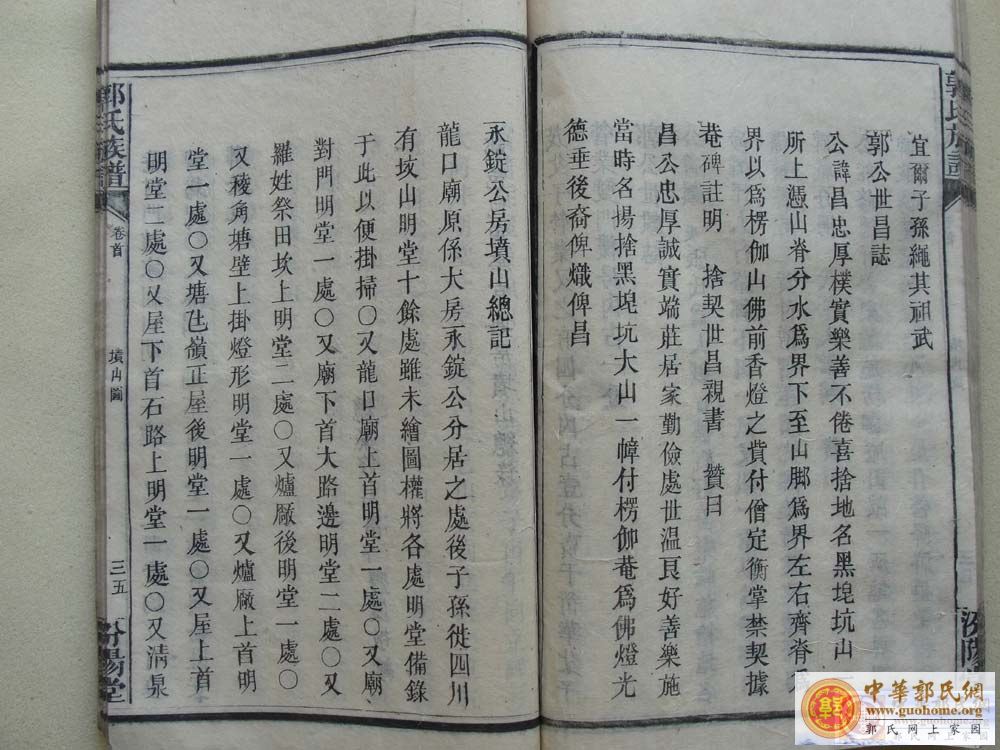 宜爾子孫繩其祖武
郭公世昌誌
公諱昌忠厚樸實樂善不倦喜捨地名黑埿坑山一
所上憑山脊分水爲界下至山脚爲界左右齊脊爲
界以爲楞伽山佛前香燈之貲付僧定衡掌禁契據
菴碑註明 捨契世昌親書 贊曰
昌公忠厚誠實端莊居家勤儉處世温良好善樂施
當時名揚捨黑埿坑大山一幛付楞伽菴爲佛燈光
德垂後裔俾熾俾昌
永錠公房墳山總記
龍口廟原係大房永錠公分居之處後子孫徙四川
有坟山明堂十餘處雖未繪圖權將各處明堂備錄
于此以便掛掃〇又龍口廟上首明堂一處〇又廟
對門明堂一處〇又廟下首大路邊明堂二處〇又
羅姓祭田坎上明堂二處〇又爐厰後明堂一處〇
又稜角塘壁上掛燈形明堂一處〇又爐厰上首明
堂一處〇又塘㐌嶺正屋後明堂一處〇又屋上首
明堂二處〇又屋下首石路上明堂一處〇又清泉
郭氏族譜
卷首
墳山圖
三五
汾陽堂
郭氏族譜
汾陽
中華郭氏網
www.guohome.org
郭氏网上家园